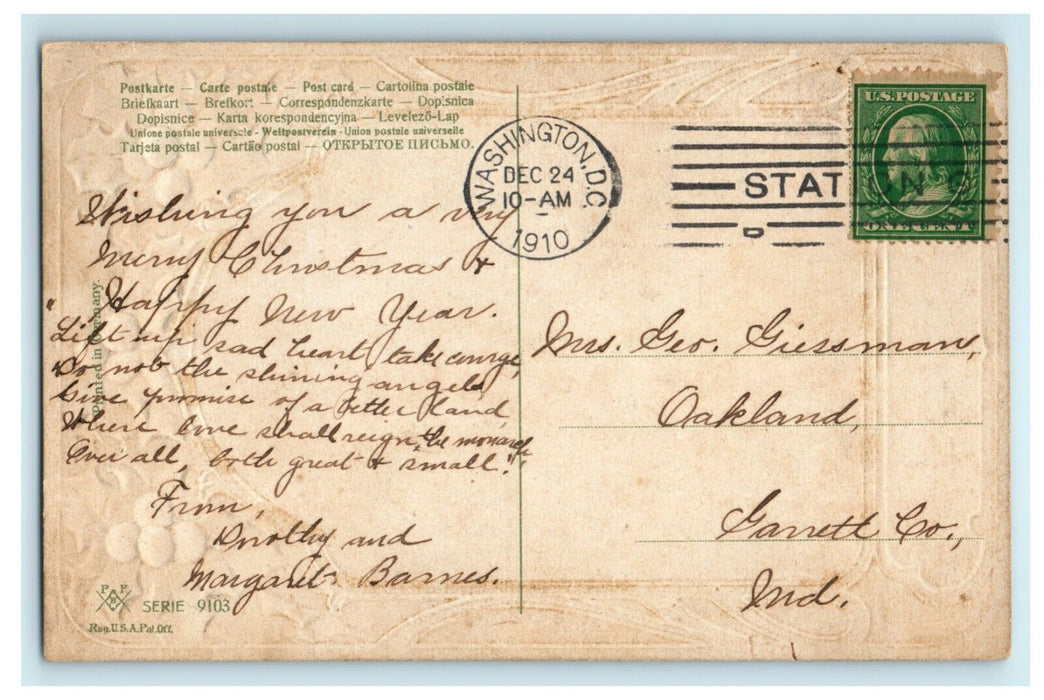 Postkarte — Carte postale — Post card — Cartolina postale
Briefkaart — Brefkort — Correspondenzkarte — Dopisnica
Dopisnice — Karta korespondencyjna — Levelező-Lap
Unione postale universale - Weltpostverein - Union postale universelle
Tarjeta postal — Cartão postal — ОТКРЫТОЕ ПИСЬМО.
WASHINGTON, D.C.
DEC 24
10-AM
1910
STAT ON 9
D
U.S. POSTAGE
ONE CENT
Wishing you a very
Merry Christmas &
Happy New Year.
"Lift up sad heart, take courage,
Do not the shining angels
Give promise of a better land,
Where love shall reign, the monarch
Over all, both great & small."
From,
Dorothy and
Margaret Barnes.
Mrs. Geo. Giessman,
Oakland,
Garrett Co.,
Md.
Printed in Germany.
P F B
SERIE 9103
Reg. U.S.A. Pat. Off.